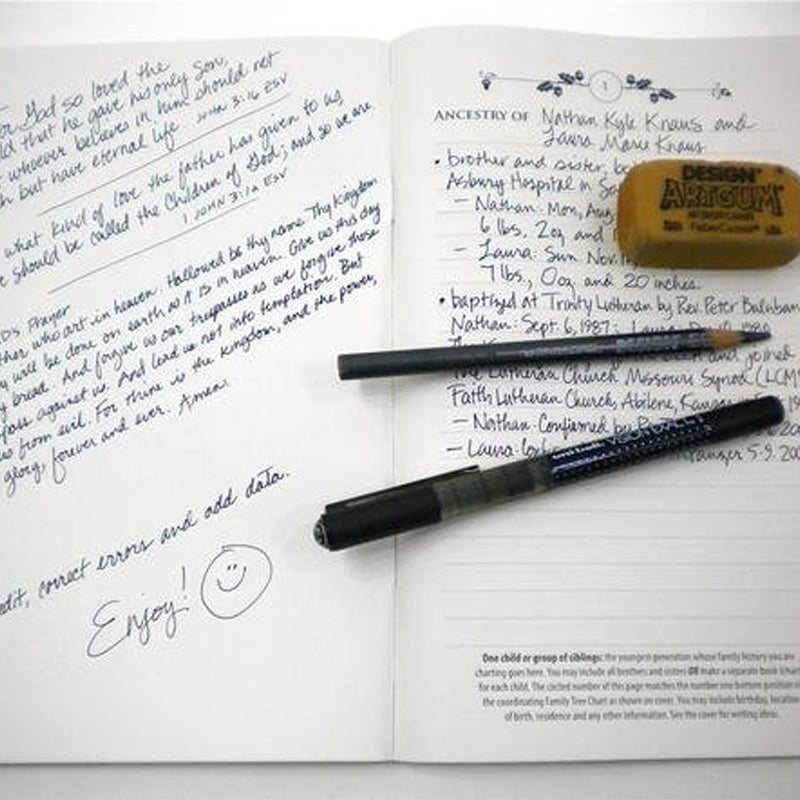 God so loved the
that he gave his only Son,
whoever believes in him should not
but have eternal life. John 3:16 ESV
what kind of love the father has given to us
should be called the Children of God; and so we are.
1 JOHN 3:1a ESV
Prayer
who art in heaven. Hallowed be thy name. Thy Kingdom
will be done on earth as it is in heaven. Give us this day
bread. And forgive us our trespasses as we forgive those
against us. And lead us not into temptation. But
us from evil. For thine is the Kingdom, and the power,
glory, forever and ever. Amen.
edit, correct errors and add data.
Enjoy!
1
ANCESTRY OF Nathan Kyle Kraus and
Laura Marie Kraus
• brother and sister,
Asbury Hospital in
– Nathan: Mon, Aug
6 lbs, 2oz and
– Laura: Sun Nov.
7 lbs, 0oz and 20 inches.
• baptized at Trinity Lutheran by Rev. Peter
Nathan: Sept. 6, 1987;
and joined
The Lutheran Church Missouri Synod
Faith Lutheran Church, Abilene,
– Nathan: Confirmed by
– Laura: 5-9.
DESIGN
ARTGUM
FaberCastell USA
One child or group of siblings: the youngest generation whose family history you are
charting goes here. You may include all brothers and sisters OR make a separate book
for each child. The circled number of this page matches the number one bottom position
the coordinating Family Tree Chart as shown on cover. You may include birthday, location
of birth, residence and any other information. See the cover for writing ideas.